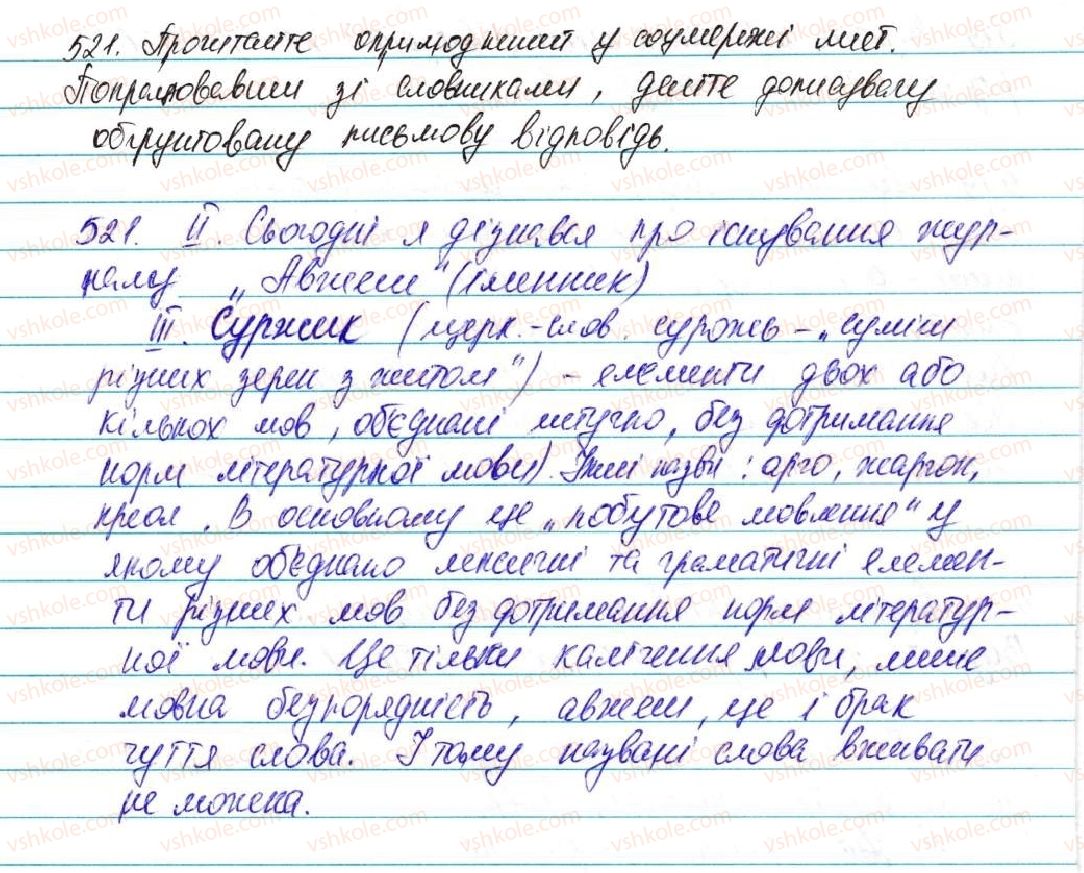 521. Прочитайте оприлюднений у соцмережі лист.
Попрацювавши зі словниками, дайте дописувачу
обґрунтовану письмову відповідь.
521. II. Сьогодні я дізнався про існування жур-
налу „Авжеш" (іменник)
III. Суржик (церк.-слов. сурожь – „суміш
різних зерен з житом") – елементи двох або
кількох мов, об'єднані штучно, без дотримання
норм літературної мови). Інші назви: арго, жаргон,
креол. В основному це „побутове мовлення" у
якому об'єднано лексичні та граматичні елемен-
ти різних мов без дотримання норм літератур-
ної мови. Це тільки калічення мови, лише
мовна безпорядність, авжеш, це і брак
чуття слова. І тому названі слова вживати
не можна.